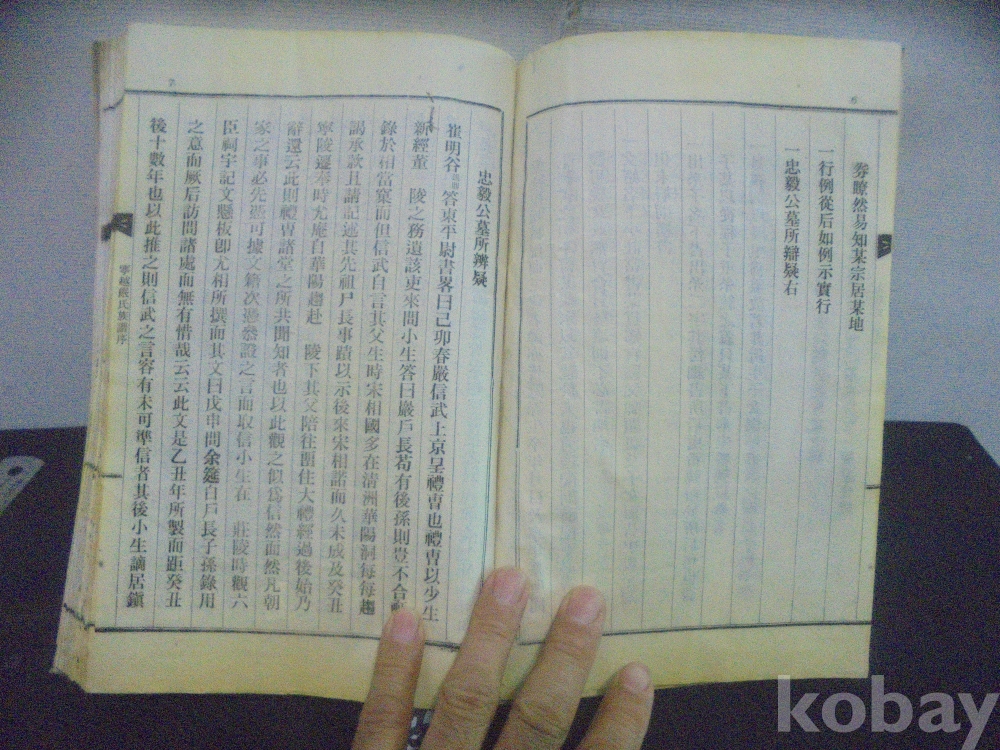 券瞭然易知某宗居某地
一行例從后如例示實行
一忠毅公墓所辯疑右
忠毅公墓所辨疑
崔明谷 答東平尉書畧曰己卯春嚴信武上京呈禮曺也禮曺以少生
新經董 陵之務遺該吏來問小生答曰嚴戶長苟有後孫則豈不合
錄於相當窠而但信武自言其父生時宋相國多在淸洲華陽洞每每趨
謁承欵且請記述其先祖戶長事蹟以示後來宋相諾而久未成及癸丑
寧陵遷奉時尤庵自華陽趨赴 陵下其父陪往團住大禮經過後始乃
辭還云此則禮曺諸堂之所共聞知者也以此觀之似爲信然而然凡朝
家之事必先憑可據文籍次憑叅證之言而取信小生在 莊陵時觀六
臣祠宇記文懸板卽尤相所撰而其文曰戊申間余筵白戶長子孫錄用
之意而厥后訪問諸處而無有惜哉云云此文是乙丑年所製而距癸丑
後十數年也以此推之則信武之言容有未可準信者其後小生謫居鎭
寧越嚴氏族譜序
kobay